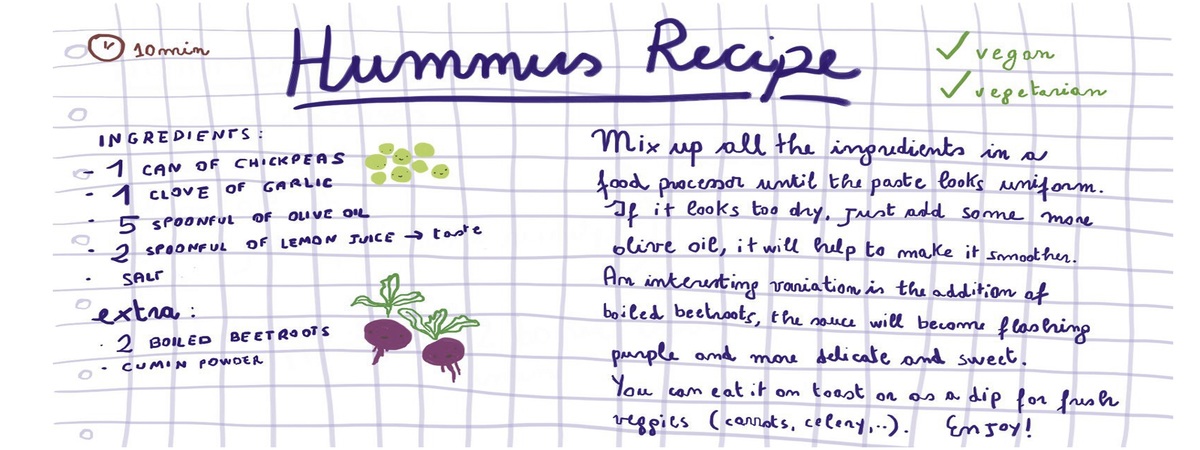 10 min
Hummus Recipe
✓ vegan
✓ vegetarian
INGREDIENTS:
- 1 CAN OF CHICKPEAS
- 1 CLOVE OF GARLIC
- 5 SPOONFUL OF OLIVE OIL
- 2 SPOONFUL OF LEMON JUICE → taste
- SALT
extra:
- 2 BOILED BEETROOTS
- CUMIN POWDER
Mix up all the ingredients in a
food processor until the paste looks uniform.
If it looks too dry, just add some more
olive oil, it will help to make it smoother.
An interesting variation is the addition of
boiled beetroots, the sauce will become flashing
purple and more delicate and sweet.
You can eat it on toast or as a dip for fresh
veggies (carrots, celery,..). Enjoy!